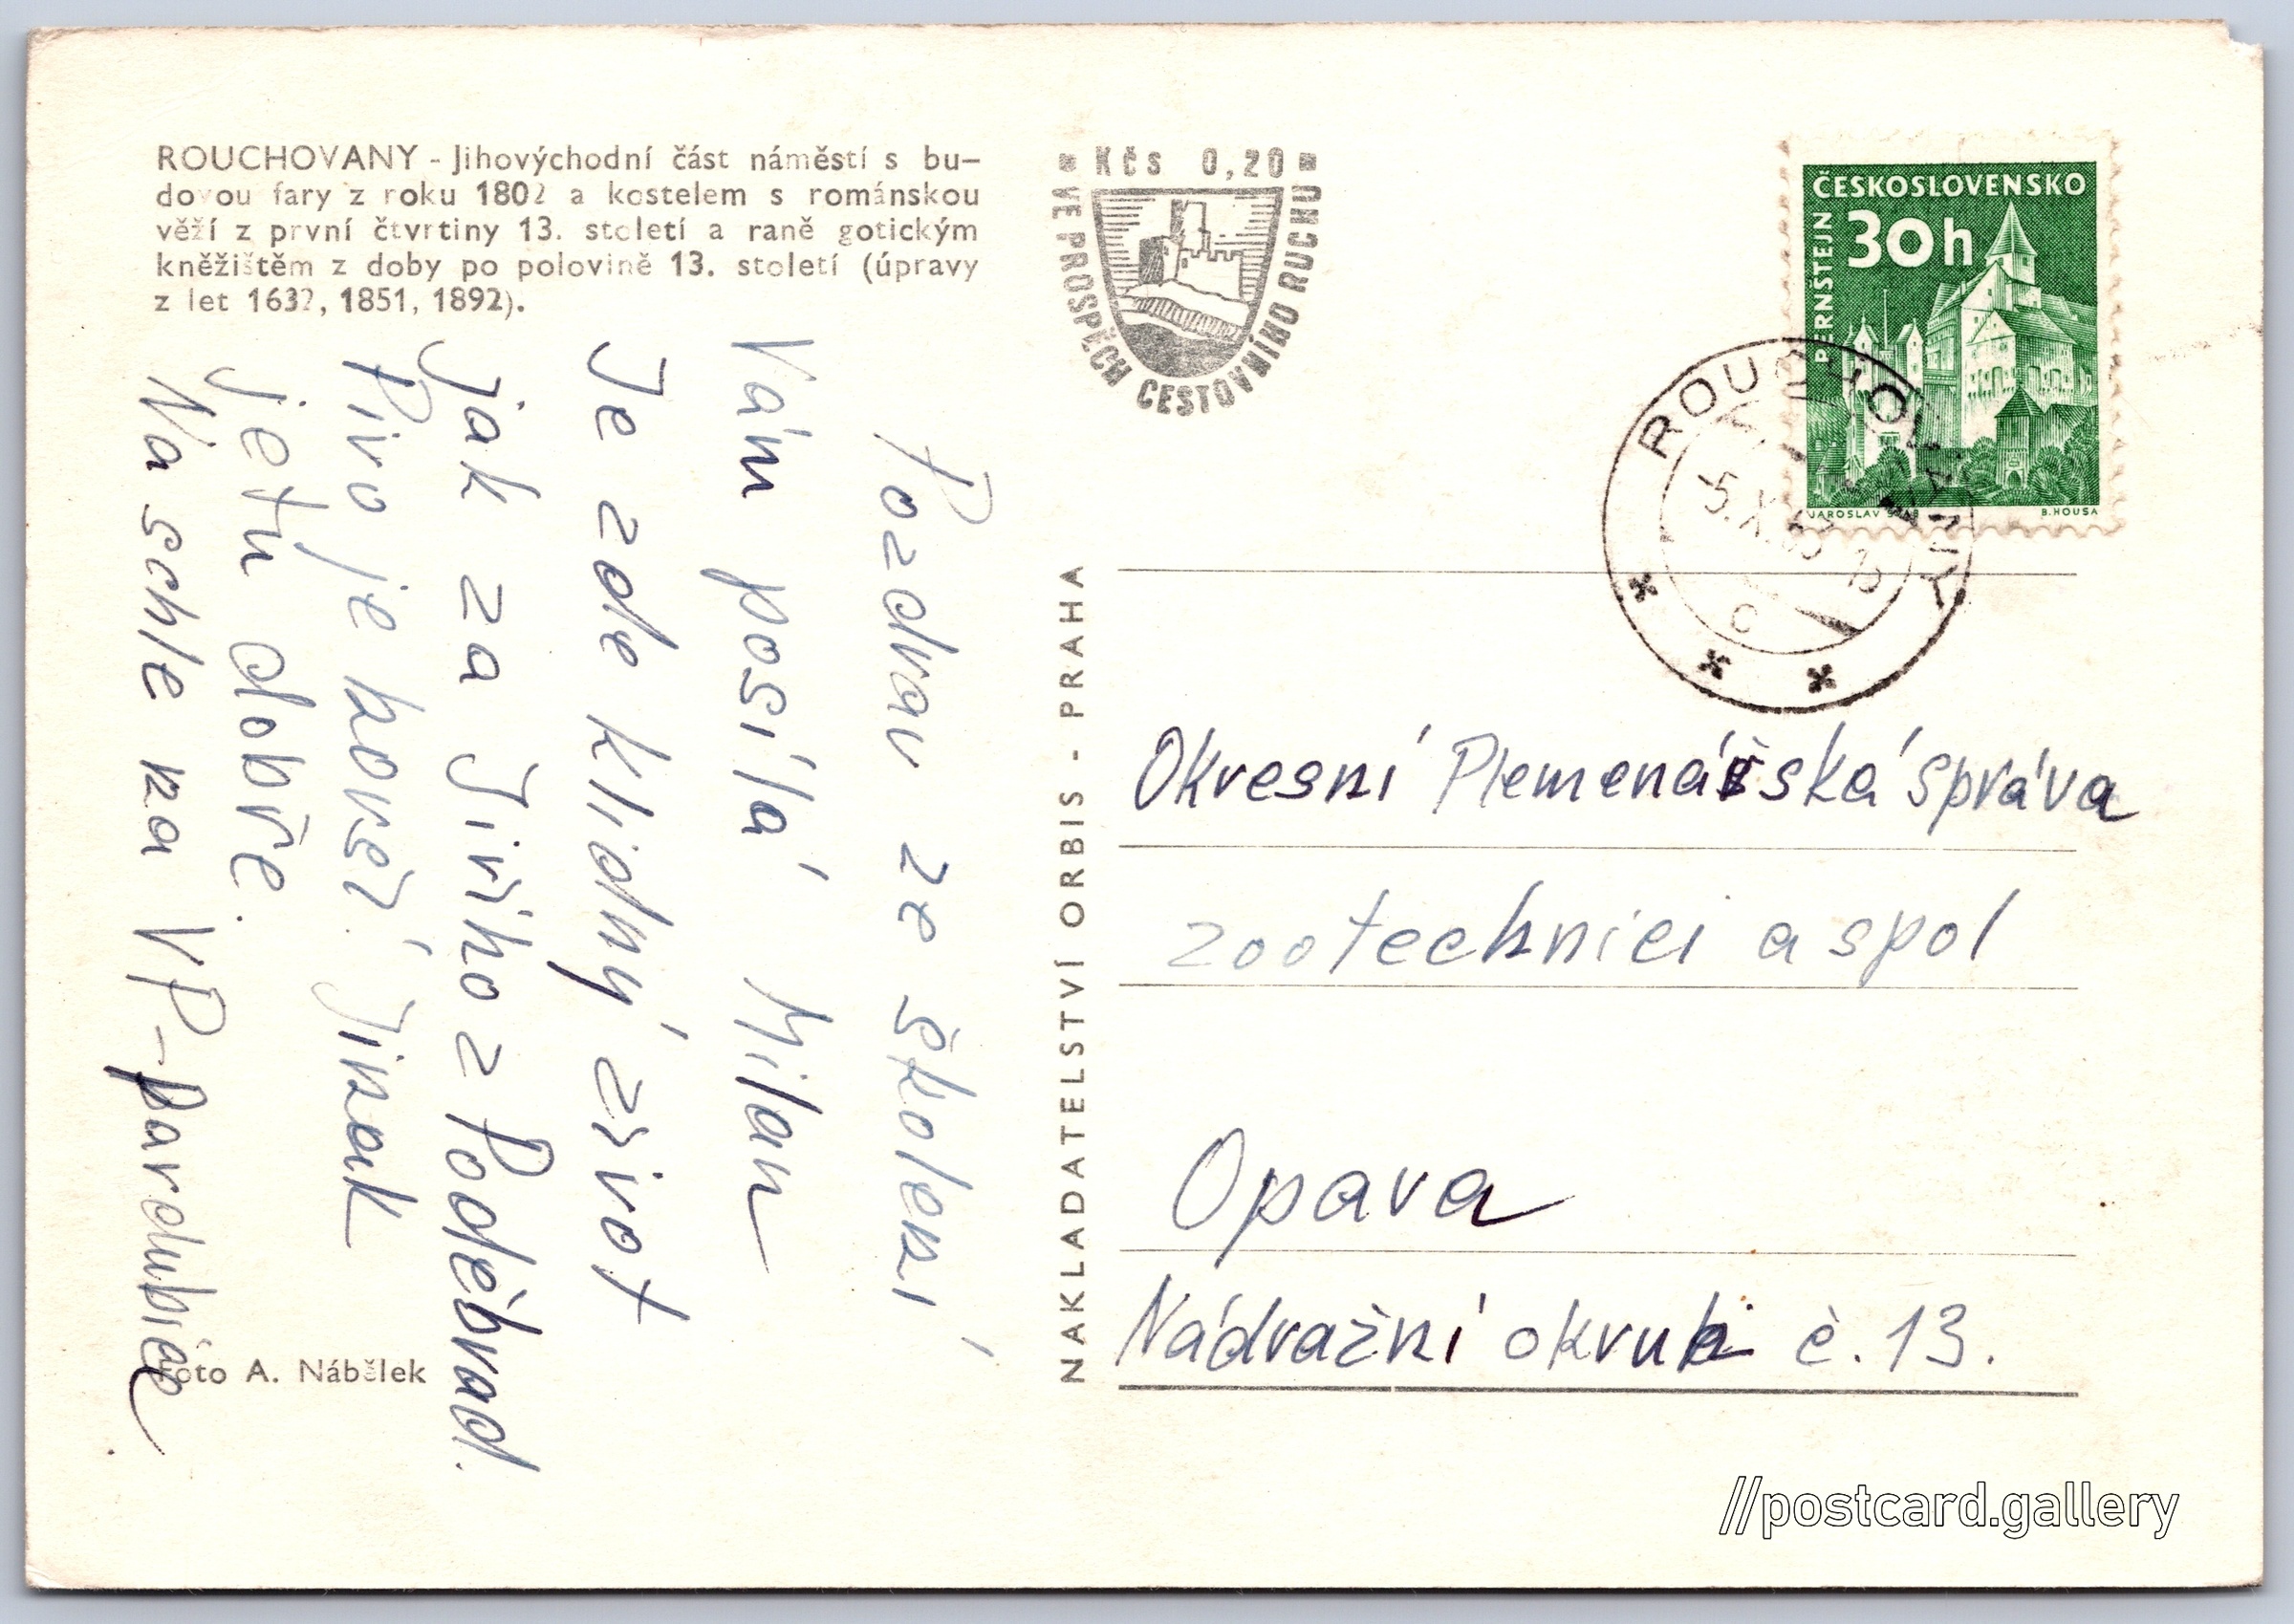 ROUCHOVANY - Jihovýchodní část náměstí s bu-
dovou fary z roku 1802 a kostelem s románskou
věží z první čtvrtiny 13. století a raně gotickým
kněžištěm z doby po polovině 13. století (úpravy
z let 1632, 1851, 1892).
Pozdrav ze školení
Vám posílá Milan
Je zde klidný život
jak za Jiřího z Poděbrad.
Pivo je horší. Jinak
je tu dobře.
Na schle na VP-Pardubice
Foto A. Nábělek
Kčs 0,20
VE PROSPĚCH CESTOVNÍHO RUCHU
NAKLADATELSTVÍ ORBIS - PRAHA
ČESKOSLOVENSKO
30h
PERNŠTEJN
JAROSLAV
B. HOUSA
ROUCHOVANY
-5.X.
c
Okresní Plemenářská správa
zootechnici a spol
Opava
Nádražní okruh č. 13.
//postcard.gallery